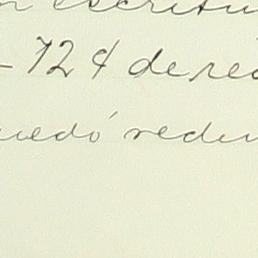 escritu
-724 de re
uedó redu